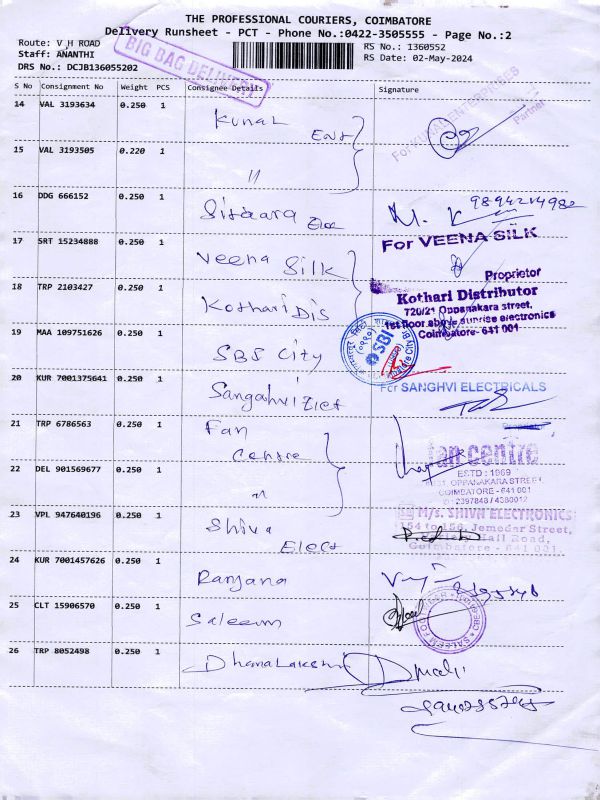 THE PROFESSIONAL COURIERS, COIMBATORE
Delivery Runsheet - PCT - Phone No.:0422-3505555 - Page No.:2
Route: V H ROAD
RS No.: 1360552
Staff: ANANTHI
RS Date: 02-May-2024
DRS No.: DCJB136055202
BIG BAG DELIVERY
S No Consignment No Weight PCS Consignee Details Signature
14 VAL 3193634 0.250 1 Kunal Ent
For KUNAL ENTERPRISES
Partner
15 VAL 3193505 0.220 1 "
16 DDG 666152 0.250 1 Sitaara Elec
17 SRT 15234888 0.250 1 Veena Silk
For VEENA SILK
Proprietor
18 TRP 2103427 0.250 1 Kothari Dis
Kothari Distributor
720/21 Oppanakara street,
1st floor above sunrise electronics
Coimbatore- 641 001
19 MAA 109751626 0.250 1 SBS City
SBI
20 KUR 7001375641 0.250 1 Sangahvi Elet
For SANGHVI ELECTRICALS
21 TRP 6786563 0.250 1 Fan Centre
fan centre
ESTD : 1969
OPPANAKARA STREET,
COIMBATORE - 641 001
22 DEL 901569677 0.250 1 "
23 VPL 947640196 0.250 1 Shiva Elect
M/s. SHIVA ELECTRONICS
154 to 156, Jemedar Street,
Hall Road,
Coimbatore - 641 001.
24 KUR 7001457626 0.250 1 Ranjana
25 CLT 15906570 0.250 1 Saleem
26 TRP 8052498 0.250 1 Dhanalakshmi